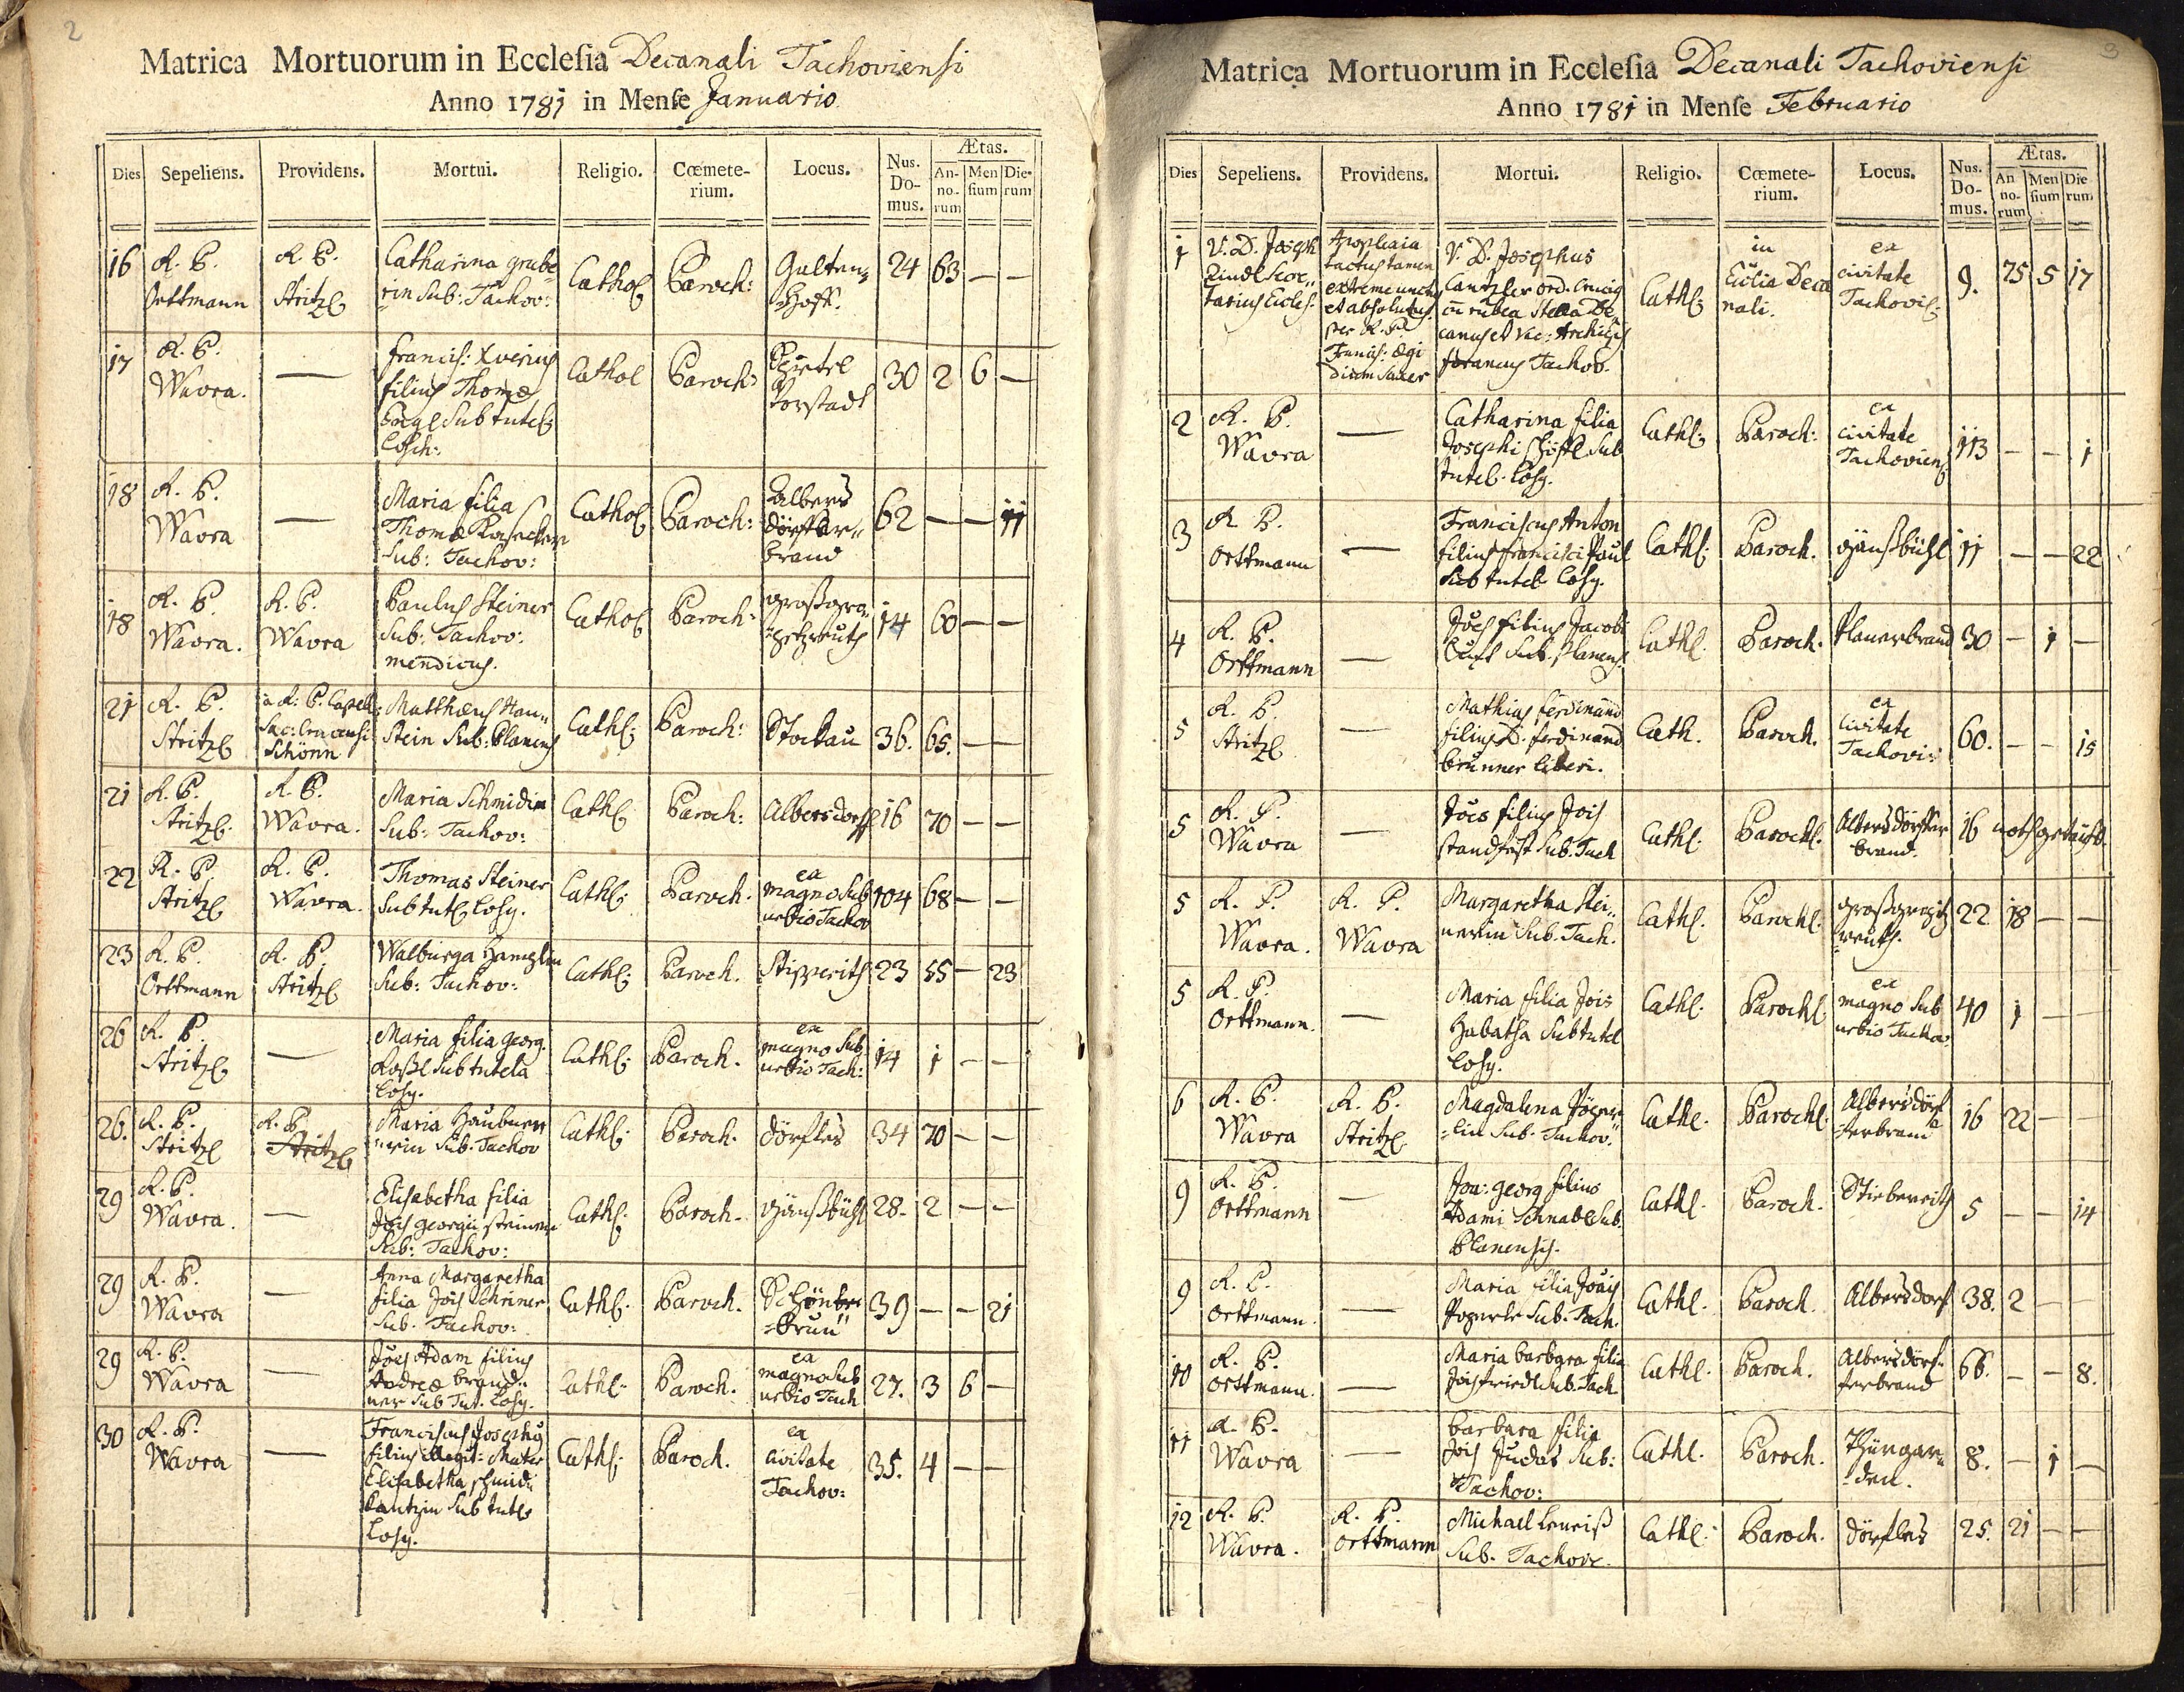 2
Matrica Mortuorum in Ecclesia Decanali Tachoviensi
Anno 1781 in Mense Januario
Dies Sepeliens. Providens. Mortui. Religio. Cœmete-rium. Locus. Nus. Do-mus. Ætas. An-no-rum Men sium Die-rum
16 R. P. Orttmann R. P. Stritzl Catharina grube rin Sub: Tachov: Cathol Paroch: Galten= hoff. 24 63 — —
17 R. P. Wavra. — francis: Xverius filius Thomæ Sub tutel Losch: Cathol Paroch: Vorstadt 30 2 6 —
18 R. P. Wavra — Maria filia Thomæ Sub: Tachov: Cathol Paroch: Albers dörffer brand 62 — — 11
18 R. P. Wavra. R. P. Wavra Paulus Steiner Sub: Tachov: mendicus. Cathol Paroch: 14 60 — —
21 R. P. Stritzl à R: P. Capell: Schönn Matthæus Hau„ Stein Sub: Planens Cathl: Paroch: Stockau 36. 65. — —
21 R. P. Stritzl. R. P. Wavra. Maria Schmidin Sub: Tachov: Cathl: Paroch: Albersdorff 16 70 — —
22 R. P. Stritzl R. P. Wavra. Thomas Steiner Sub tutl Losy. Cathl: Paroch: ex magno Sub urbio Tachov 104 68 — —
23 R. P. Orttmann R. P. Stritzl Walburga Sub: Tachov: Cathl: Paroch. Stipperith 23 55 — 23
26 R. P. Stritzl — Maria filia georg. Sub tutela Losy. Cathl: Paroch. ex magno Sub urbio Tach: 14 1 — —
26. R. P. Stritzl R. P. Stritzl Maria Haubner nerin Sub. Tachov Cathl: Paroch. dörfles 34 70 — —
29 R. P. Wavra. — Elisabetha filia Jois georgii Steiner Sub: Tachov: Cathl: Paroch. gänßbühl 28. 2 — —
29 R. P. Wavra — Anna Margaretha filia Jois Schriner Sub. Tachov: Cathl: Paroch. Schönbr =brun 39 — — 21
29 R. P. Wavra — Jois Adam filius Andreæ brand„ ner Sub Tut. Losy. Cathl: Paroch. ex magno Sub urbio Tach 27. 3 6 —
30 R. P. Wavra — Franciscus Josephus filius illegit: Mater Elisabetha Schmid Sub tutl Losy. Cathl: Paroch. ex civitate Tachov: 35. 4 — —
3
Matrica Mortuorum in Ecclesia Decanali Tachoviensi
Anno 1781 in Mense Februario
Dies Sepeliens. Providens. Mortui. Religio. Cœmete-rium. Locus. Nus. Do-mus. Ætas. An no-rum Men sium Die rum
1 V. D. Joseph Lindl Secre„ tarius Eccles. Apoplexia tactus tamen extreme unctus et absolutus per R. P. Francis: Ægi dium Sauer V. D. Josephus Cantzler ord. Crucig cũ rubea Stella De canus et Vic: Archiepis foraneus Tachov. Cathl: in Ecclia Deca nali. ex civitate Tachovi: 9. 75 5 17
2 R. P. Wavra — Catharina filia Josephi Sub tutel. Losy. Cathl: Paroch: ex civitate Tachoviens 113 — — 1
3 R. P. Orttmann — Franciscus Anton filius francisci Paul Sub tutel Losy. Cathl: Paroch. gänßbühl 11 — — 22
4 R. P. Orttmann — Jois filius Jacobi Sub. Planens. Cathl. Paroch. Planerbrand 30 — 1 —
5 R. P. Stritzl — Mathias ferdinand filius D. ferdinand Brunner liberi. Cath. Paroch. ex civitate Tachovi: 60. — — 15
5 R. P. Wavra — Jois filius Jois Standfest Sub. Tach Cathl. Parochl. Albersdörffer brand. 16 nothgetauft.
5 R. P. Wavra. R. P. Wavra Margaretha Stei„ nerin Sub. Tach. Cathl. Parochl. 22 18 — —
5 R. P. Orttmann. — Maria filia Jois Habatha Sub tutel Losy. Cathl. Parochl ex magno Sub urbio Tachov 40 1 — —
6 R. P. Wavra R. P. Stritzl Magdalena =lin Sub. Tachov. Cathl. Parochl. Albersdörf ferbrand 16 22 —
9 R. P. Orttmann — Joa: georg filius Adami Schnabl Sub. Planensis. Cathl. Paroch. Stiebereith 5 — — 14
9 R. P. Orttmann. — Maria filia Joais Sub. Tach. Cathl. Paroch. Albersdorf 38. 2 —
10 R. P. Orttmann. — Maria barbara filia Jois friedl Sub. Tach Cathl. Paroch. Albersdörf„ ferbrand 66. — — 8.
11 R. P. Wavra — barbara filia Jois Judas Sub: Tachov: Cathl. Paroch. Thiergar„ den. 8. — 1 —
12 R. P. Wavra. R. P. Orttmann Michael Sub. Tachov. Cathl. Paroch. dörfles 25. 21 — —